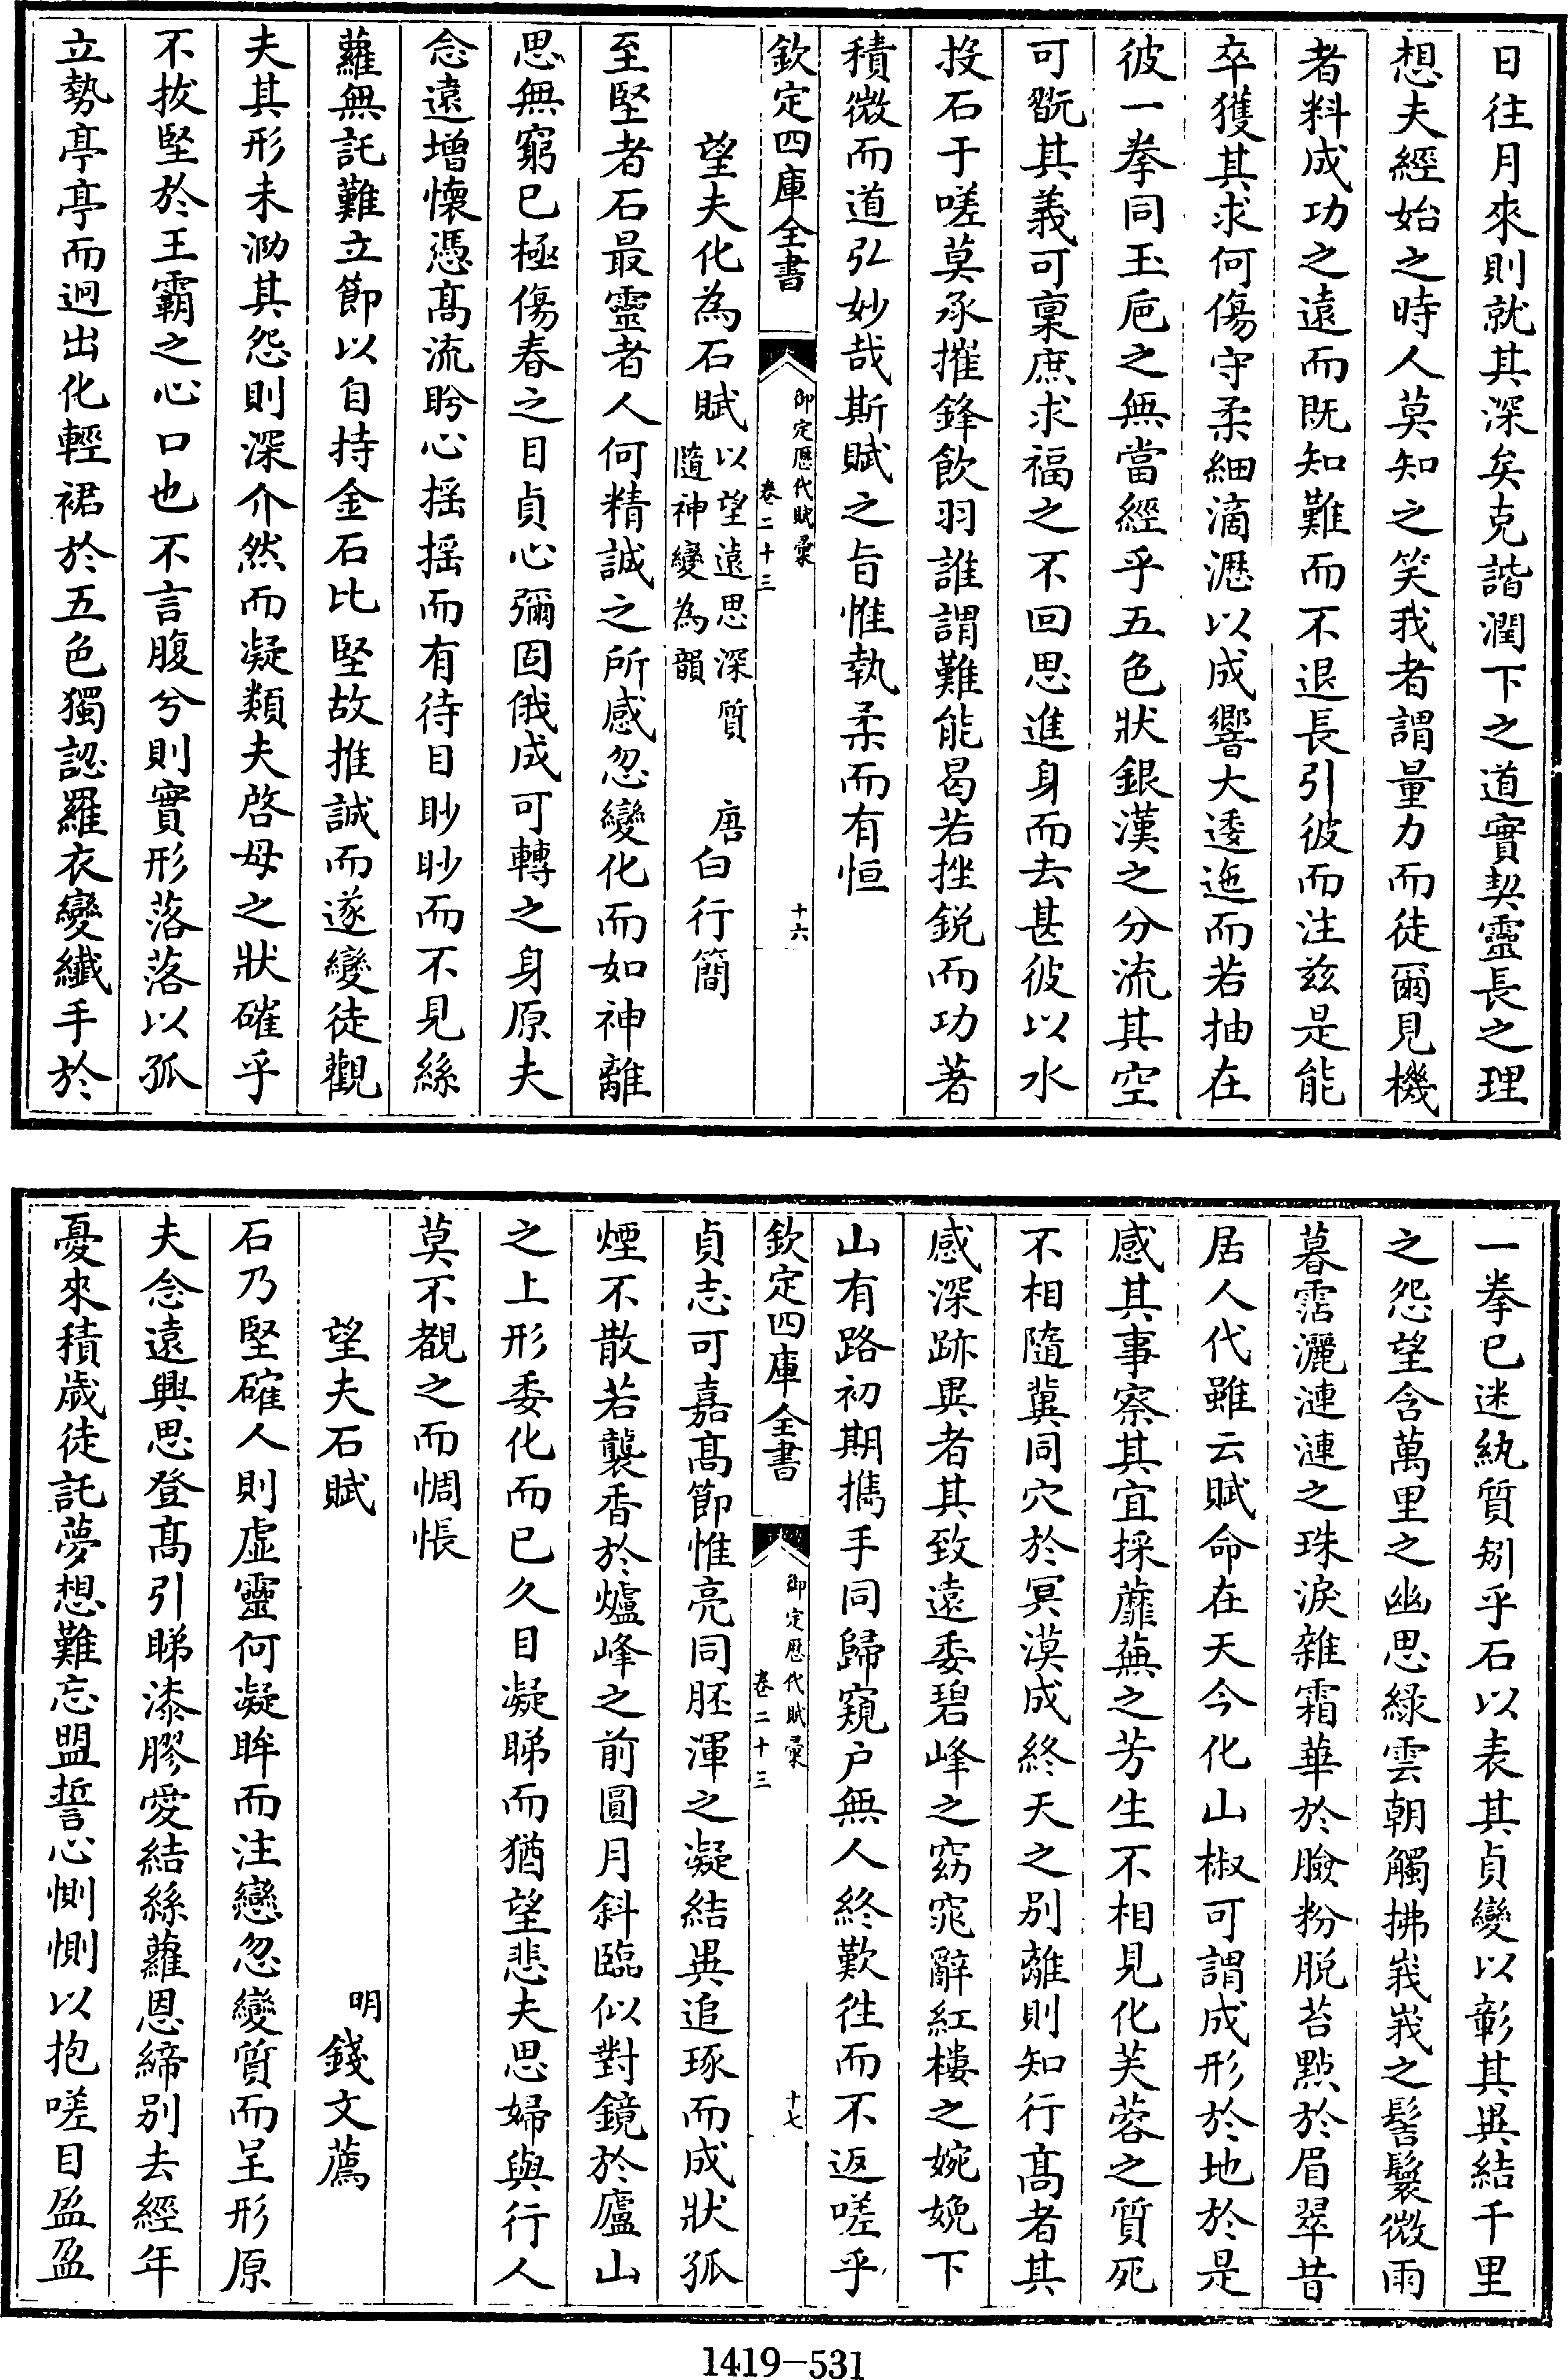 日往月來則就其深矣克諧潤下之道實契靈長之理
想夫經始之時人莫知之笑我者謂量力而徒爾見機
者料成功之遠而既知難而不退長引彼而注兹是能
卒獲其求何傷守柔細滴瀝以成響大逶迤而若抽在
彼一拳同玉巵之無當經乎五色狀銀漢之分流其空
可翫其義可稟庶求福之不回思進身而去甚彼以水
投石于嗟莫承摧鋒飲羽誰謂難能曷若挫鋭而功著
積微而道弘妙哉斯賦之旨惟執柔而有恒
欽定四庫全書
御定歷代賦彙
卷二十三
十六
望夫化為石賦
以望遠思深質
隨神變為韻
唐白行簡
至堅者石最靈者人何精誠之所感忽變化而如神離
思無窮已極傷春之目貞心彌固俄成可轉之身原夫
念遠增懷憑高流眄心摇摇而有待目眇眇而不見絲
蘿無託難立節以自持金石比堅故推誠而遂變徒觀
夫其形未泐其怨則深介然而凝類夫啓母之狀確乎
不拔堅於王霸之心口也不言腹兮則實形落落以孤
立勢亭亭而迥出化輕裙於五色獨認羅衣變纖手於
一拳已迷紈質矧乎石以表其貞變以彰其異結千里
之怨望含萬里之幽思綠雲朝觸拂峩峩之髻鬟微雨
暮霑灑漣漣之珠淚雜霜華於臉粉脱苔點於眉翠昔
居人代雖云賦命在天今化山椒可謂成形於地於是
感其事察其宜採蘼蕪之芳生不相見化芙蓉之質死
不相隨冀同穴於冥漠成終天之别離則知行高者其
感深跡異者其致遠委碧峰之窈窕辭紅樓之婉娩下
山有路初期攜手同歸窺户無人終歎徃而不返嗟乎
欽定四庫全書
御定歷代賦彙
卷二十三
十七
貞志可嘉高節惟亮同胚渾之凝結異追琢而成狀孤
煙不散若襲香於爐峰之前圓月斜臨似對鏡於廬山
之上形委化而已久目凝睇而猶望悲夫思婦與行人
莫不覩之而惆悵
望夫石賦
明錢文薦
石乃堅確人則虚靈何凝眸而注戀忽變質而呈形原
夫念遠興思登高引睇漆膠愛結絲蘿恩締别去經年
憂來積歲徒託夢想難忘盟誓心惻惻以抱嗟目盈盈
1419—531